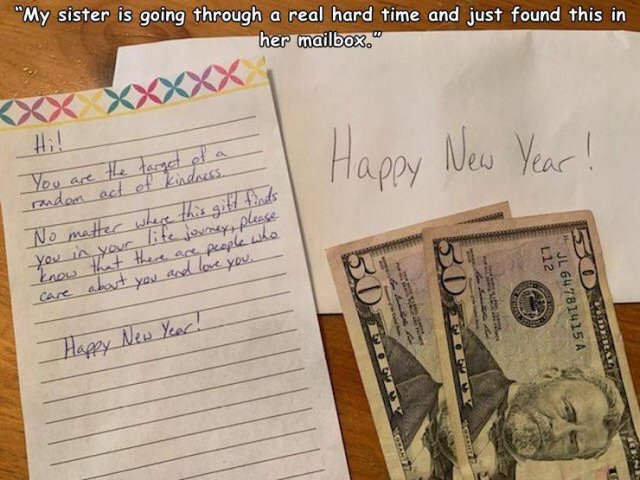 "My sister is going through a real hard time and just found this in
her mailbox."
Hi!
You are the target of a
random act of kindness.
No matter where this gift finds
you in your life journey, please
know that there are people who
care about you and love you.
Happy New Year!
Happy New Year!
50
50
JL 64781415 A
L12
50